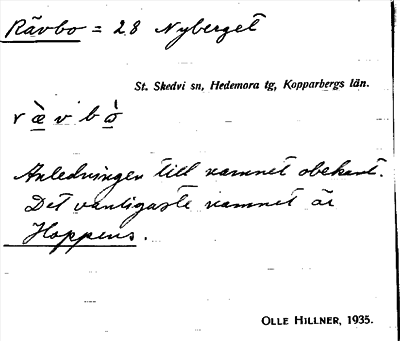 Rävbo = 28 Nyberget
St. Skedvi sn, Hedemora tg, Kopparbergs län.
r æ̀ v b ò
Anledningen till namnet obekant.
Det vanligaste namnet är
Hoppens.
OLLE HILLNER, 1935.